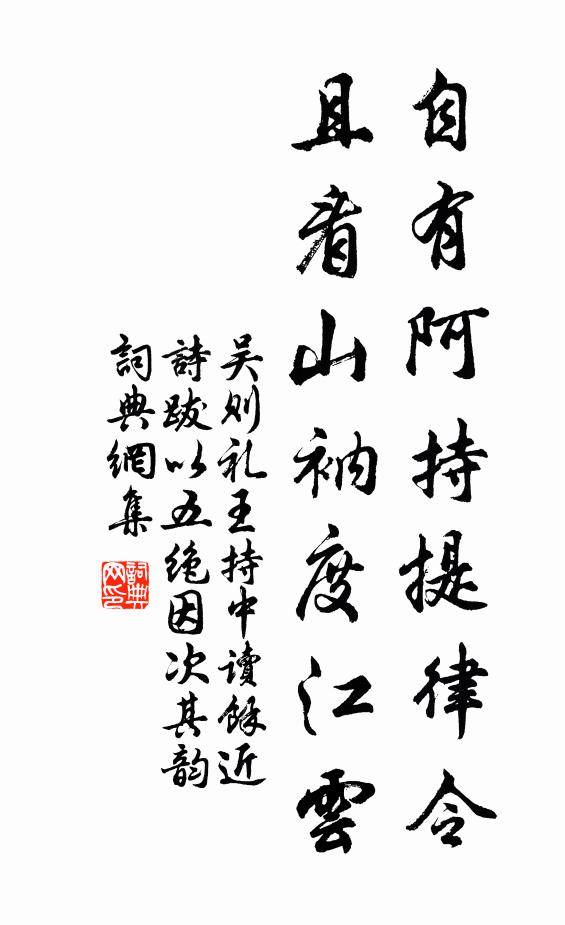 自有阿持提律令
且看山衲度江雲
吴则礼王持中讀餘近
詩跋以五绝因次其韵
詞典網集
詞典网印